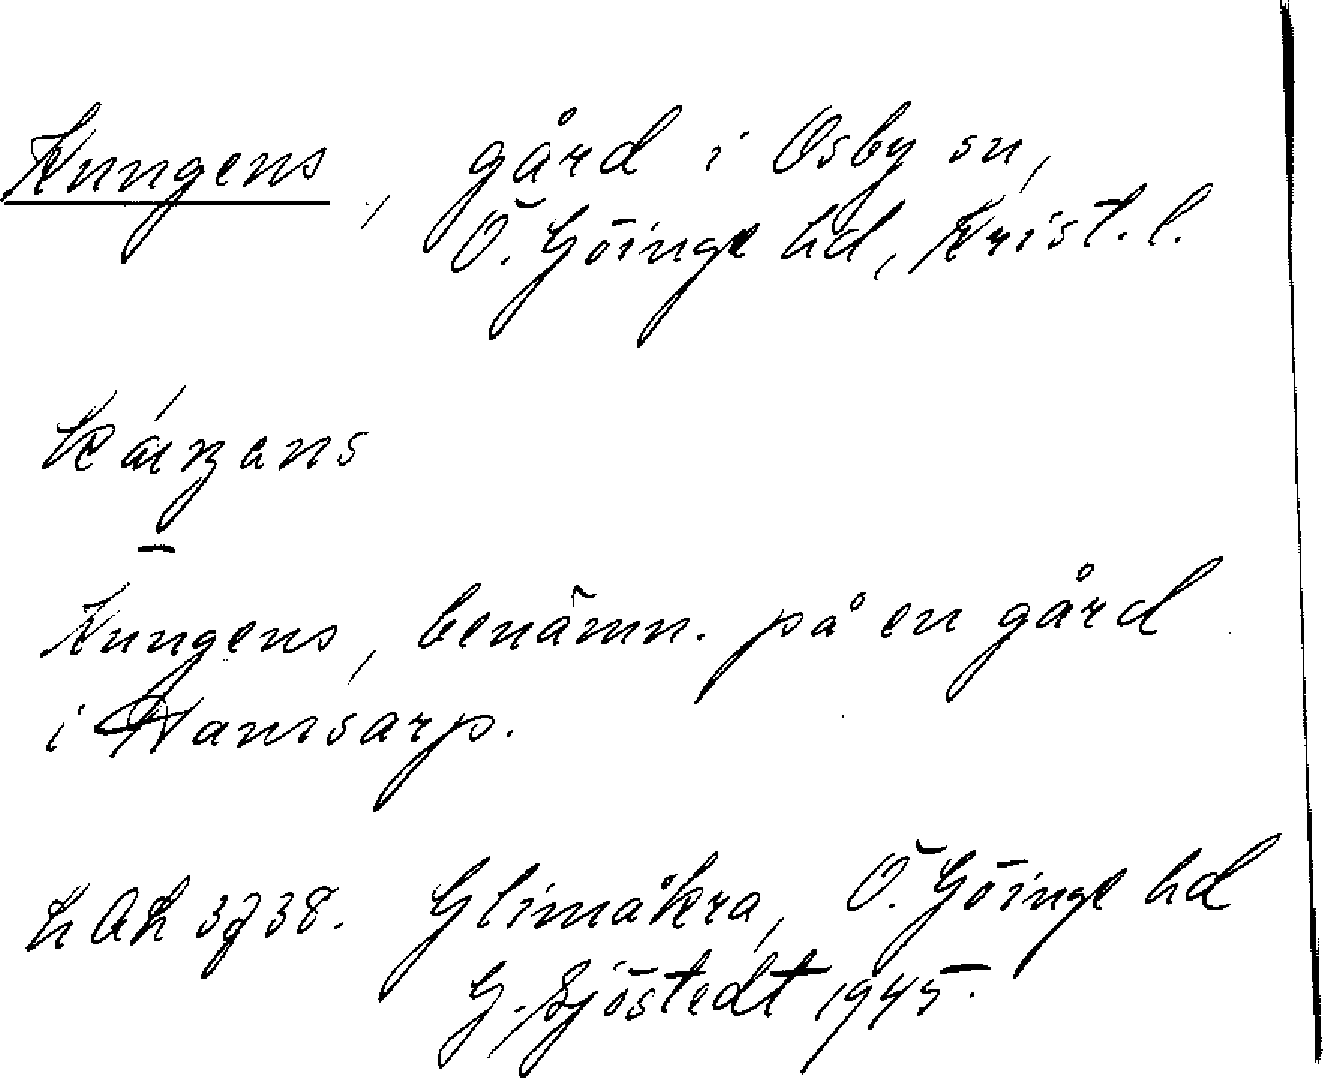 Kungens, gård i Osby sn,
Ö. Göinge hd, Krist. l.
Kungens, benämn. på en gård
i Hamsarp.
LAL 3738. Glimåkra, Ö. Göinge hd
G. Sjöstedt 1945.